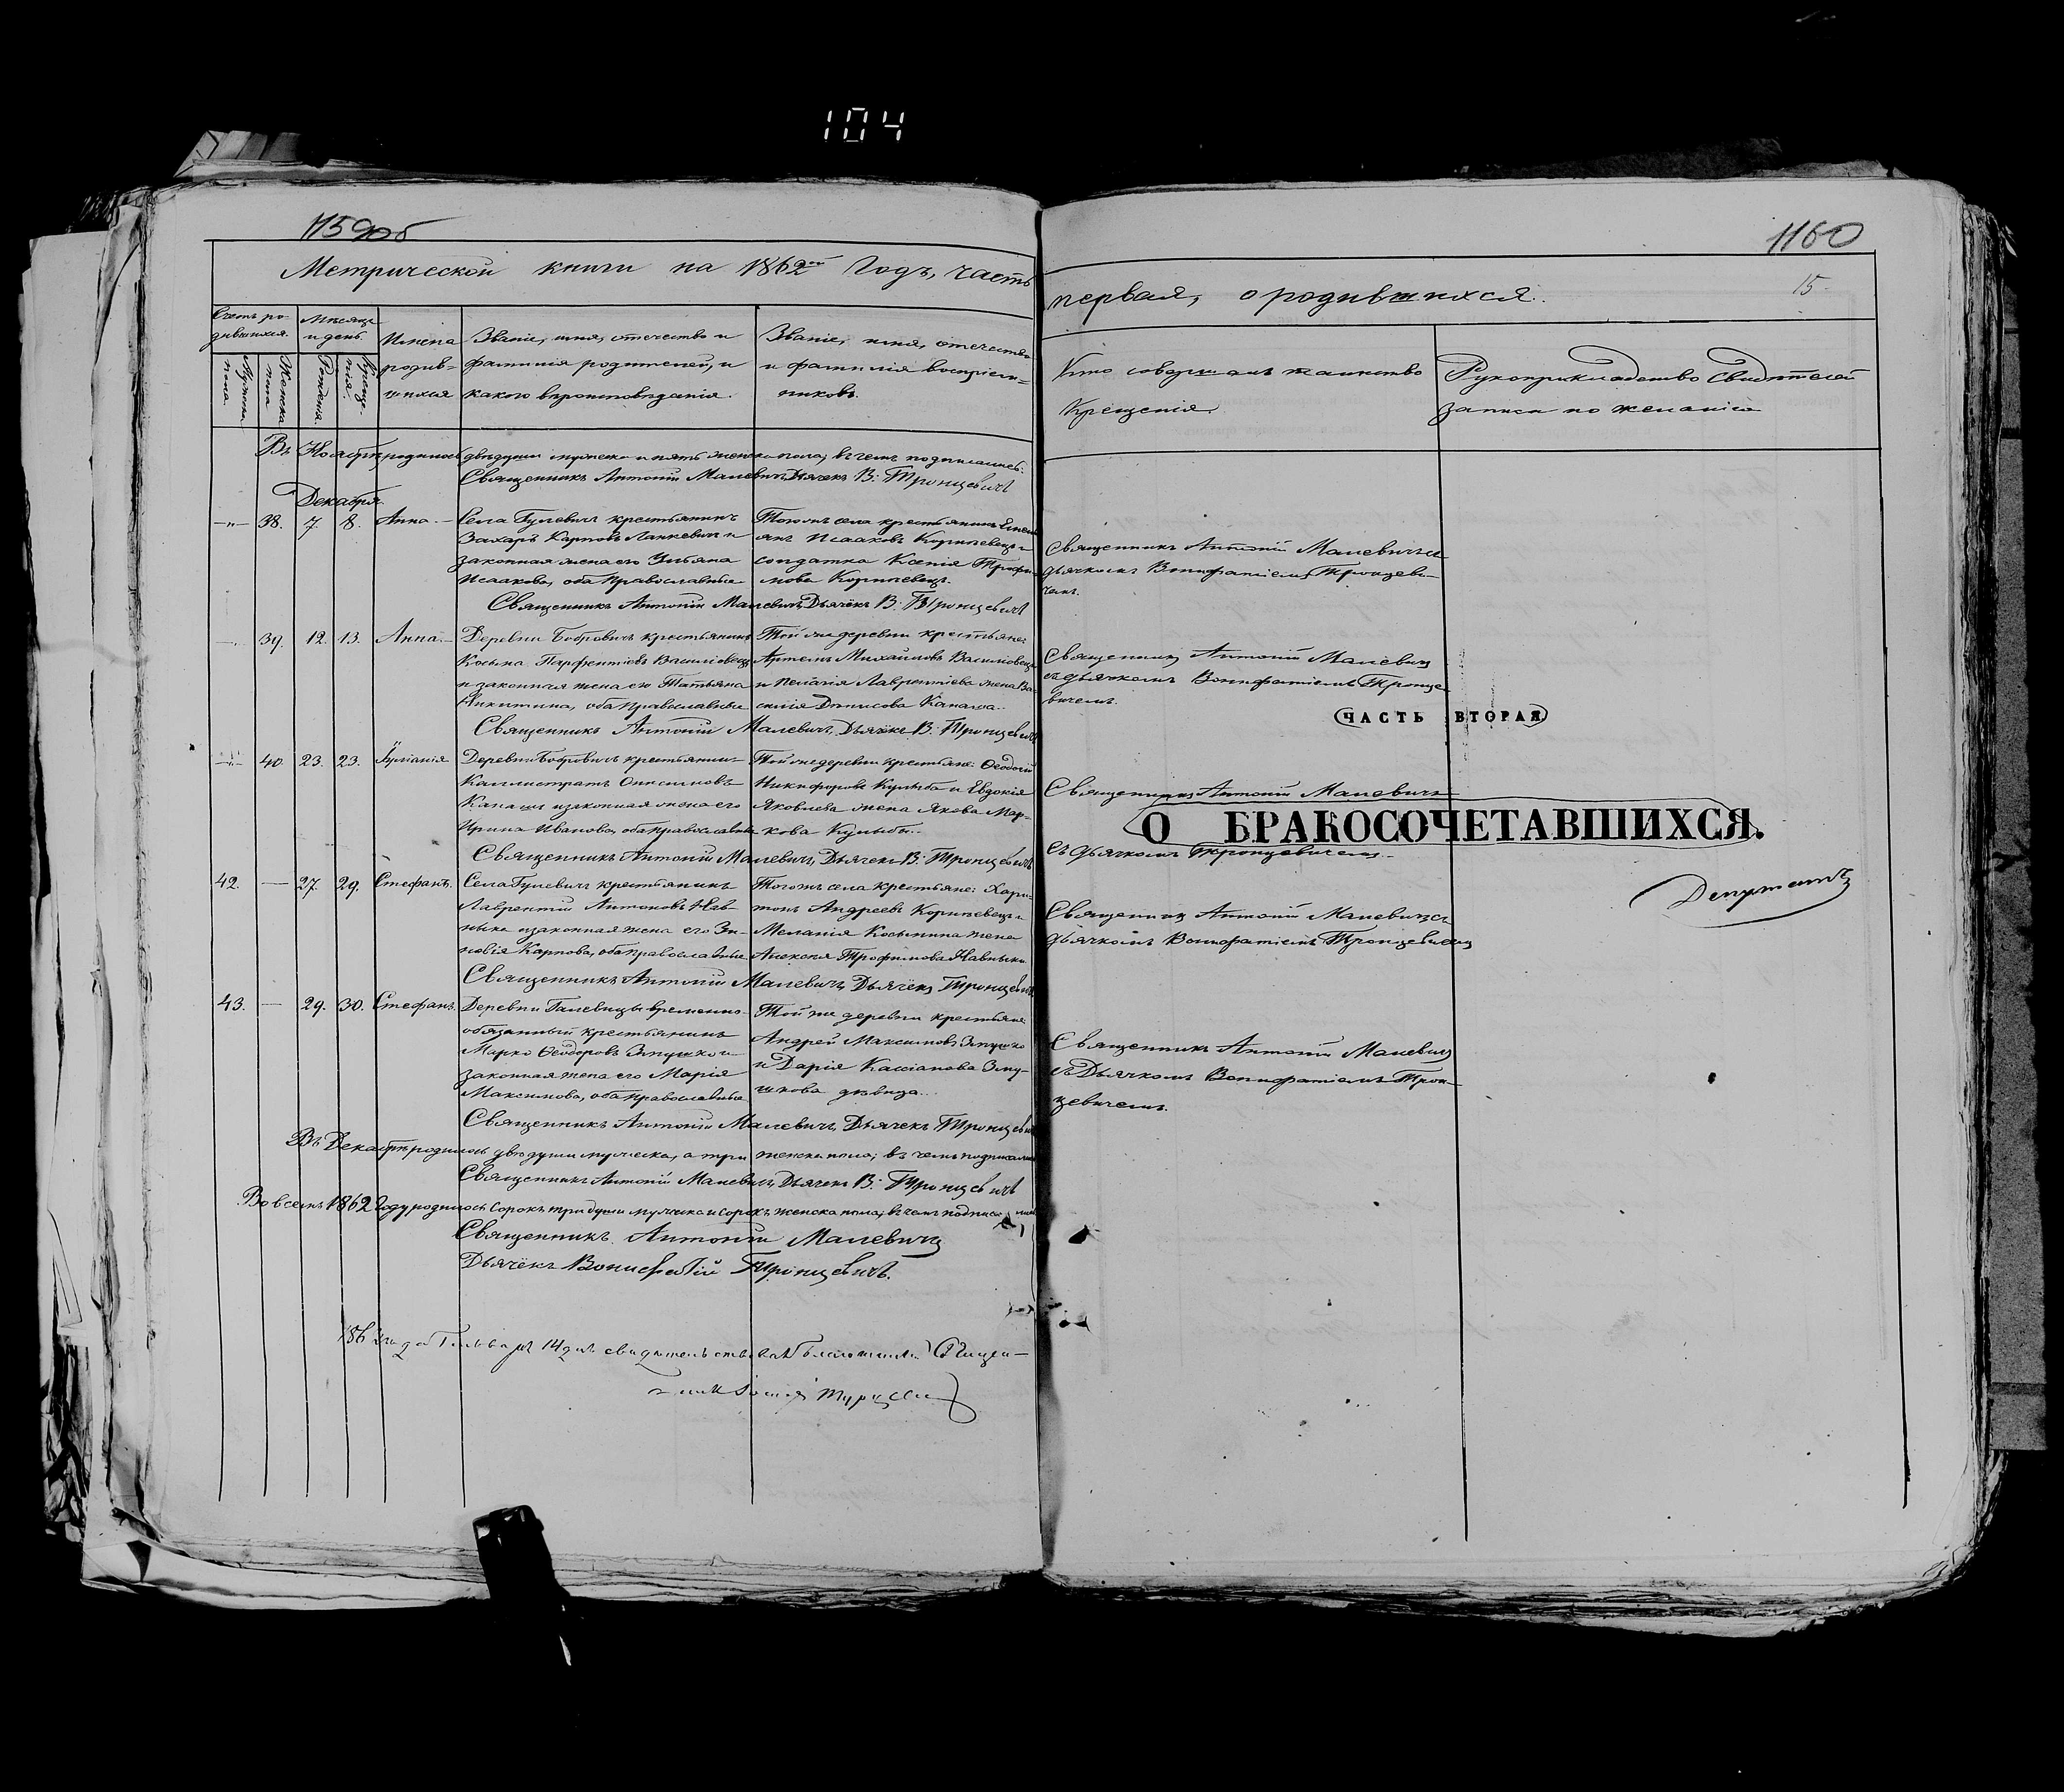 104
1159об
1160
Метрической книги на 1862ой Годъ, часть
первая, о родившихся.
15
Счетъ ро-
дившихся.
Мужеска
пола.
Женска
пола
Мѣсяцъ
и день.
Рожденія.
Креще-
нія.
Имена
родив-
шихся
Званіе, имя, отечество и
фамилія родителей, и
какого вѣроисповѣданія.
Званіе, имя, отечество
и фамилія воспріем-
никовъ.
Кто совершалъ таинство
Крещенія.
Рукоприкладство Свидѣтелей
записи по желанію
Въ Ноябрѣ родилось двѣ души мужеска и пять женска пола; въ чемъ подписались:
Священникъ Антоній Малевичъ, Дьячекъ В: Тронцевичъ
Декабря.
—"— 38. 7. 8. Анна.
Села Гулевичъ крестьянинъ
Захаръ Карповъ Ланкевичъ и
законная жена его Ульяна
Исаакова, оба Православные
Тогожъ села крестьянинъ Емель
янъ Исааковъ Корневецъ и
солдатка Ксенія Трофи-
мова Корневецъ.
Священникъ Антоній Малевичъ съ
дьячкомъ Вонифатіемъ Тронцеви-
чемъ.
Священникъ Антоній Малевичъ, Дьячекъ В: Тронцевичъ
— 39. 12. 13. Анна.
Деревни Бобровичъ крестьянинъ
Косьма Парфентіевъ Василовецъ
и законная жена его Татьяна
Никитина, оба Православные
Той же деревни крестьяне:
Артемъ Михайловъ Василовецъ
и Пелагія Лаврентіева жена Ва-
силія Денисова Канаша.
Священникъ Антоній Малевичъ
съ дьячкомъ Вонифатіемъ Тронце-
вичемъ.
Священникъ Антоній Малевичъ, Дьячекъ В: Тронцевичъ
ЧАСТЬ ВТОРАЯ
—"— 40. 23. 23. Іуліанія
Деревни Бобровичъ крестьянин-
Каллистратъ Онисимовъ
Канашъ и законная жена его
Ирина Иванова, оба Православные
Той же деревни крестьяне: Ѳеодосій
Никифоровъ Кулыба и Евдокія
Яковлева жена Якова Мар-
кова Кулыбы.
Священникъ Антоній Малевичъ
О БРАКОСОЧЕТАВШИХСЯ.
съ дьячкомъ Тронцевичемъ.
Священникъ Антоній Малевичъ, Дьячекъ В: Тронцевичъ
Депутатъ
42. — 27. 29. Стефанъ.
Села Гулевичъ крестьянинъ
Лаврентій Антоновъ Нав-
ныко и законная жена его Зи-
новія Карпова, оба Православные
Тогожъ села крестьяне: Хари-
тонъ Андреевъ Корневецъ и
Меланія Косьмина жена
Алексея Трофимова Навныки
Священникъ Антоній Малевичъ съ
дьячкомъ Вонифатіемъ Тронцевичемъ
Священникъ Антоній Малевичъ, Дьячекъ Тронцевичъ
43. — 29. 30. Стефанъ.
Деревни Галевицы временно-
обязанный крестьянинъ
Марко Ѳеодоровъ Змушко и
законная жена его Марія
Максимова, оба Православные
Той же деревни крестьяне
Андрей Максимовъ Змушко
и Дарія Кассіанова Зму-
шкова дѣвица.
Священникъ Антоній Малевичъ
съ Дьячкомъ Вонифатіемъ Трон-
цевичемъ.
Священникъ Антоній Малевичъ, Дьячекъ Тронцевичъ
Въ Декабрѣ родилось двѣ души мужеска, а три женска пола; въ чемъ подписались
Священникъ Антоній Малевичъ, Дьячекъ В: Тронцевичъ
Во всемъ 1862 Году родилось сорокъ три души мужеска и сорокъ женска пола; въ чемъ подписались
Священникъ Антоній Малевичъ
Дьячёкъ Вонифатій Тронцевичъ.
14 дня свидетельствовалъ Благочинный Священ-